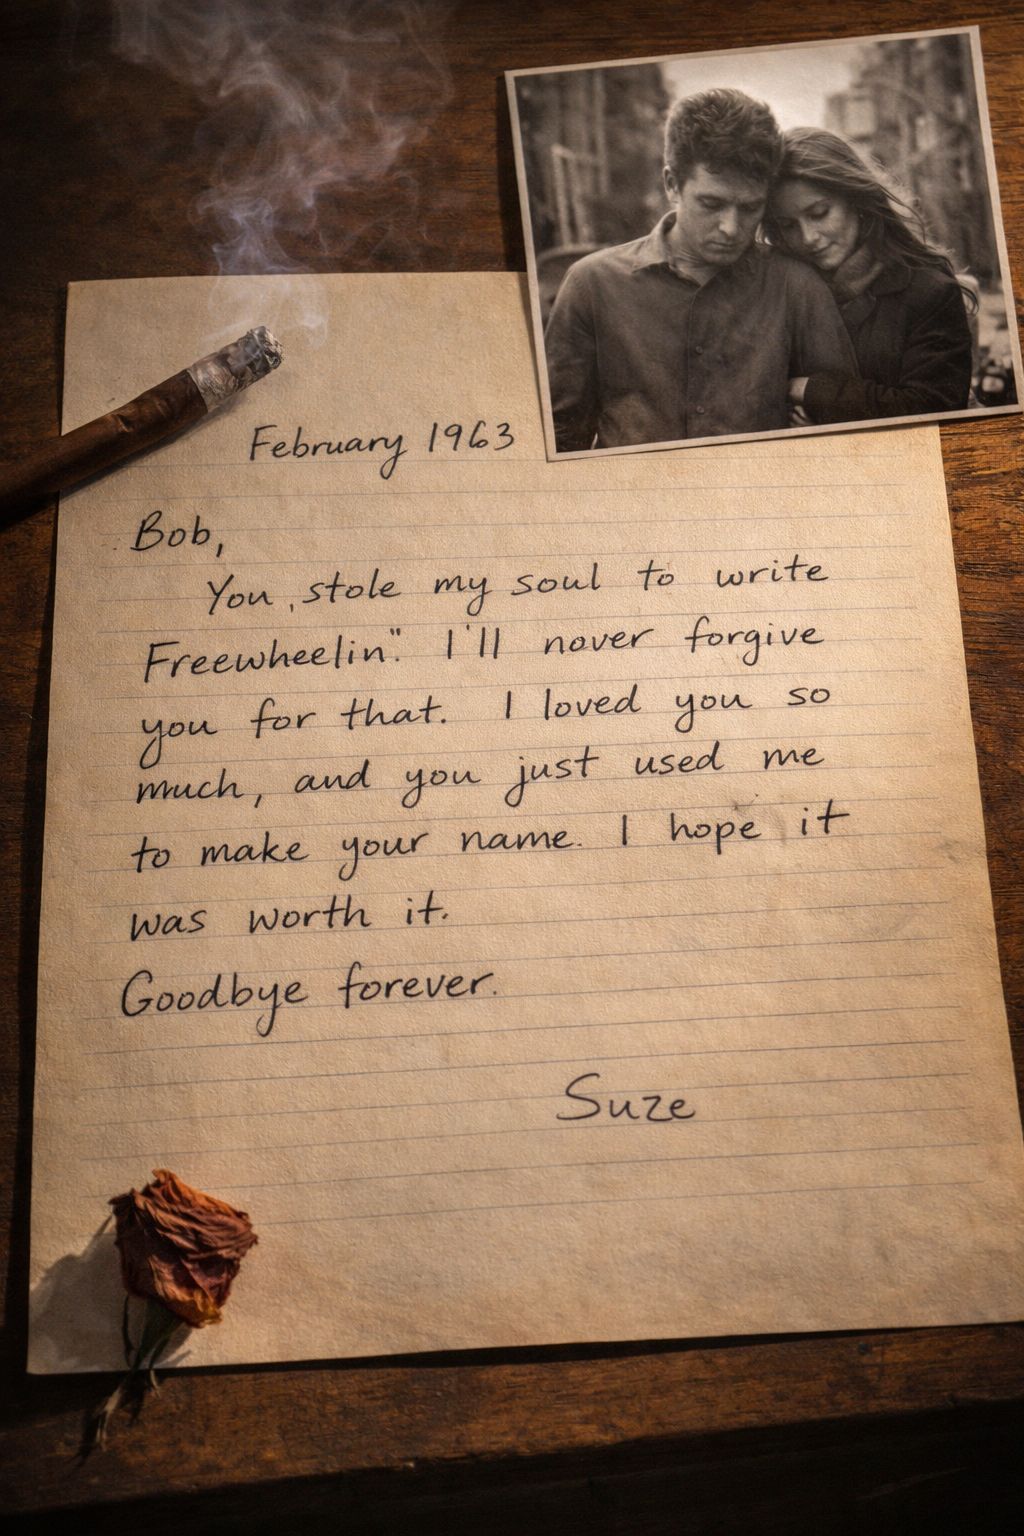 February 1963
Bob,
You stole my soul to write
Freewheelin." I'll never forgive
you for that. I loved you so
much, and you just used me
to make your name. I hope it
was worth it.
Goodbye forever.
Suze